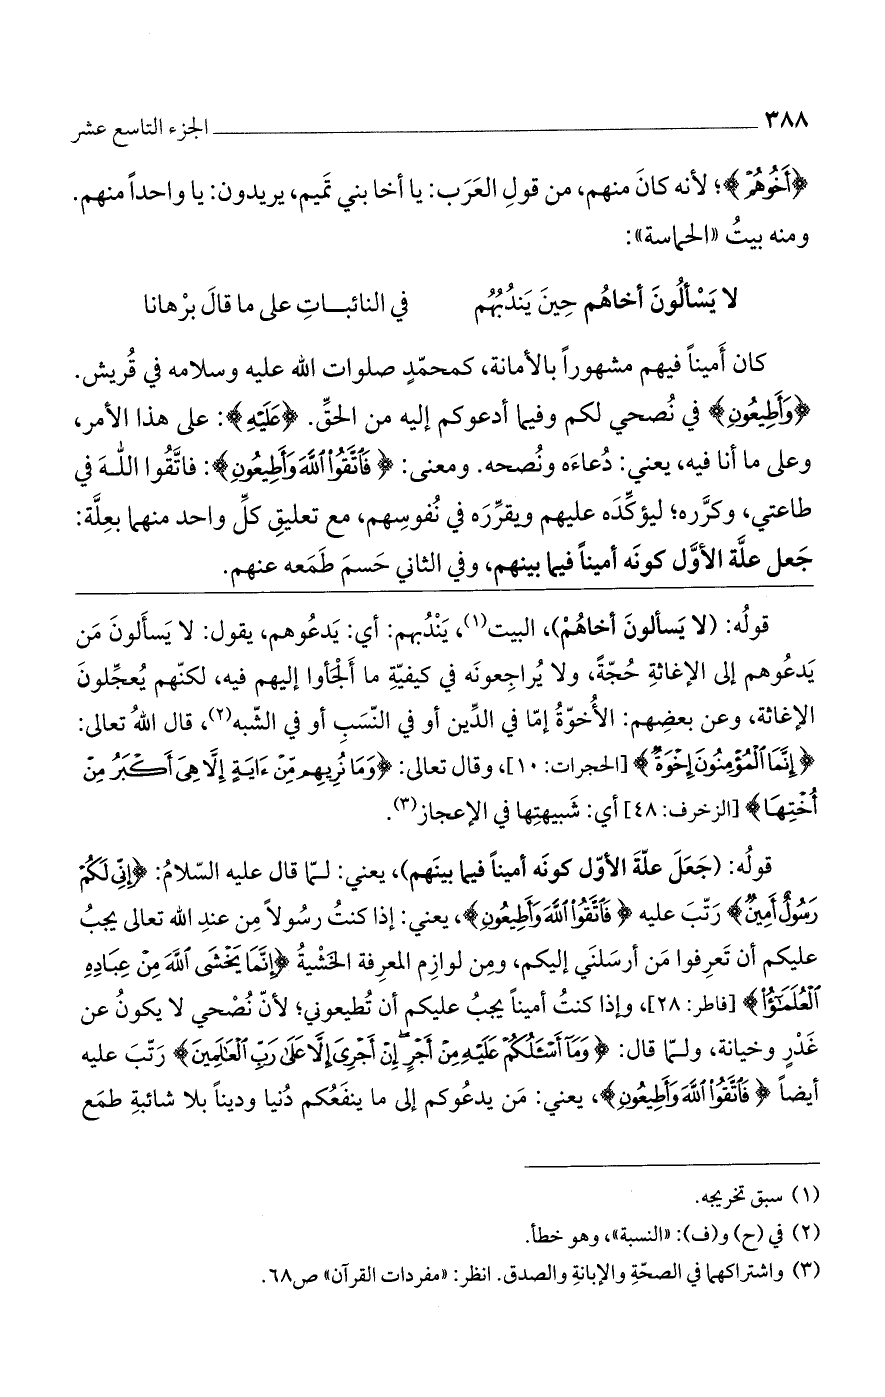 ٣٨٨ الجزء التاسع عشر
﴿أَخُوهُمْ﴾؛ لأنه كانَ منهم، من قولِ العَرَب: يا أخا بني تَميم، يريدون: يا واحداً منهم.
ومنه بيتُ «الحماسة»:
لا يَسْألُونَ أخاهُم حِينَ يَندُبُهُم في النائبـاتِ على ما قالَ برْهانا
كان أَميناً فيهم مشهوراً بالأمانة، كمحمّدٍ صلوات الله عليه وسلامه في قُريش.
﴿وَأَطِيعُونِ﴾ في نُصحي لكم وفيما أدعوكم إليه من الحقِّ. ﴿عَلَيْهِ﴾: على هذا الأمر،
وعلى ما أنا فيه، يعني: دُعاءَه ونُصحه. ومعنى: ﴿فَٱتَّقُوا۟ ٱللَّهَ وَأَطِيعُونِ﴾: فاتَّقُوا اللـهَ في
طاعتي، وكرَّره؛ ليؤكِّدَه عليهم ويقرِّرَه في نُفوسِهم، مع تعليقِ كلِّ واحد منهما بعِلَّة:
جَعل علَّة الأوَّل كونَه أميناً فيما بينهم، وفي الثاني حَسمَ طَمَعه عنهم.
قولُه: (لا يَسألونَ أخاهُمْ)، البيت(١)، يَنْدُبهم: أي: يَدعُوهم، يقول: لا يَسأَلونَ مَن
يَدعُوهم إلى الإغاثةِ حُجّةً، ولا يُراجِعونَه في كيفيّةِ ما أَلْجَأوا إليهم فيه، لكنّهم يُعجِّلونَ
الإغاثة، وعن بعضِهم: الأُخوّةُ إمّا في الدِّين أو في النّسَبِ أو في الشّبه(٢)، قال اللهُ تعالى:
﴿إِنَّمَا ٱلْمُؤْمِنُونَ إِخْوَةٌ﴾ [الحجرات: ١٠]، وقال تعالى: ﴿وَمَا نُرِيهِم مِّنْ ءَايَةٍ إِلَّا هِىَ أَكْبَرُ مِنْ
أُخْتِهَا﴾ [الزخرف: ٤٨] أي: شَبيهتِها في الإعجاز(٣).
قولُه: (جَعَلَ علّةَ الأوّل كونَه أميناً فيما بينَهم)، يعني: لـمّا قال عليه السّلامُ: ﴿إِنِّى لَكُمْ
رَسُولٌ أَمِينٌ﴾ رَتّبَ عليه ﴿فَٱتَّقُوا۟ ٱللَّهَ وَأَطِيعُونِ﴾، يعني: إذا كنتُ رسُولاً مِن عندِ الله تعالى يجبُ
عليكم أن تَعرِفوا مَن أرسَلَني إليكم، ومِن لوازِمِ المعرفة الخَشْيةُ ﴿إِنَّمَا يَخْشَى ٱللَّهَ مِنْ عِبَادِهِ
ٱلْعُلَمَـٰٓؤُا۟﴾ [فاطر: ٢٨]، وإذا كنتُ أميناً يجبُ عليكم أن تُطيعوني؛ لأنّ نُصْحي لا يكونُ عن
غَدْرٍ وخيانة، ولـمّا قال: ﴿وَمَآ أَسْـَٔلُكُمْ عَلَيْهِ مِنْ أَجْرٍ إِنْ أَجْرِىَ إِلَّا عَلَىٰ رَبِّ ٱلْعَـٰلَمِينَ﴾ رَتّبَ عليه
أيضاً ﴿فَٱتَّقُوا۟ ٱللَّهَ وَأَطِيعُونِ﴾، يعني: مَن يدعُوكم إلى ما ينفَعُكم دُنيا وديناً بلا شائبةِ طمَع
(١) سبق تخريجه.
(٢) في (ح) و(ف): «النسبة»، وهو خطأ.
(٣) واشتراكهما في الصحّةِ والإبانةِ والصدق. انظر: «مفردات القرآن» ص٦٨.